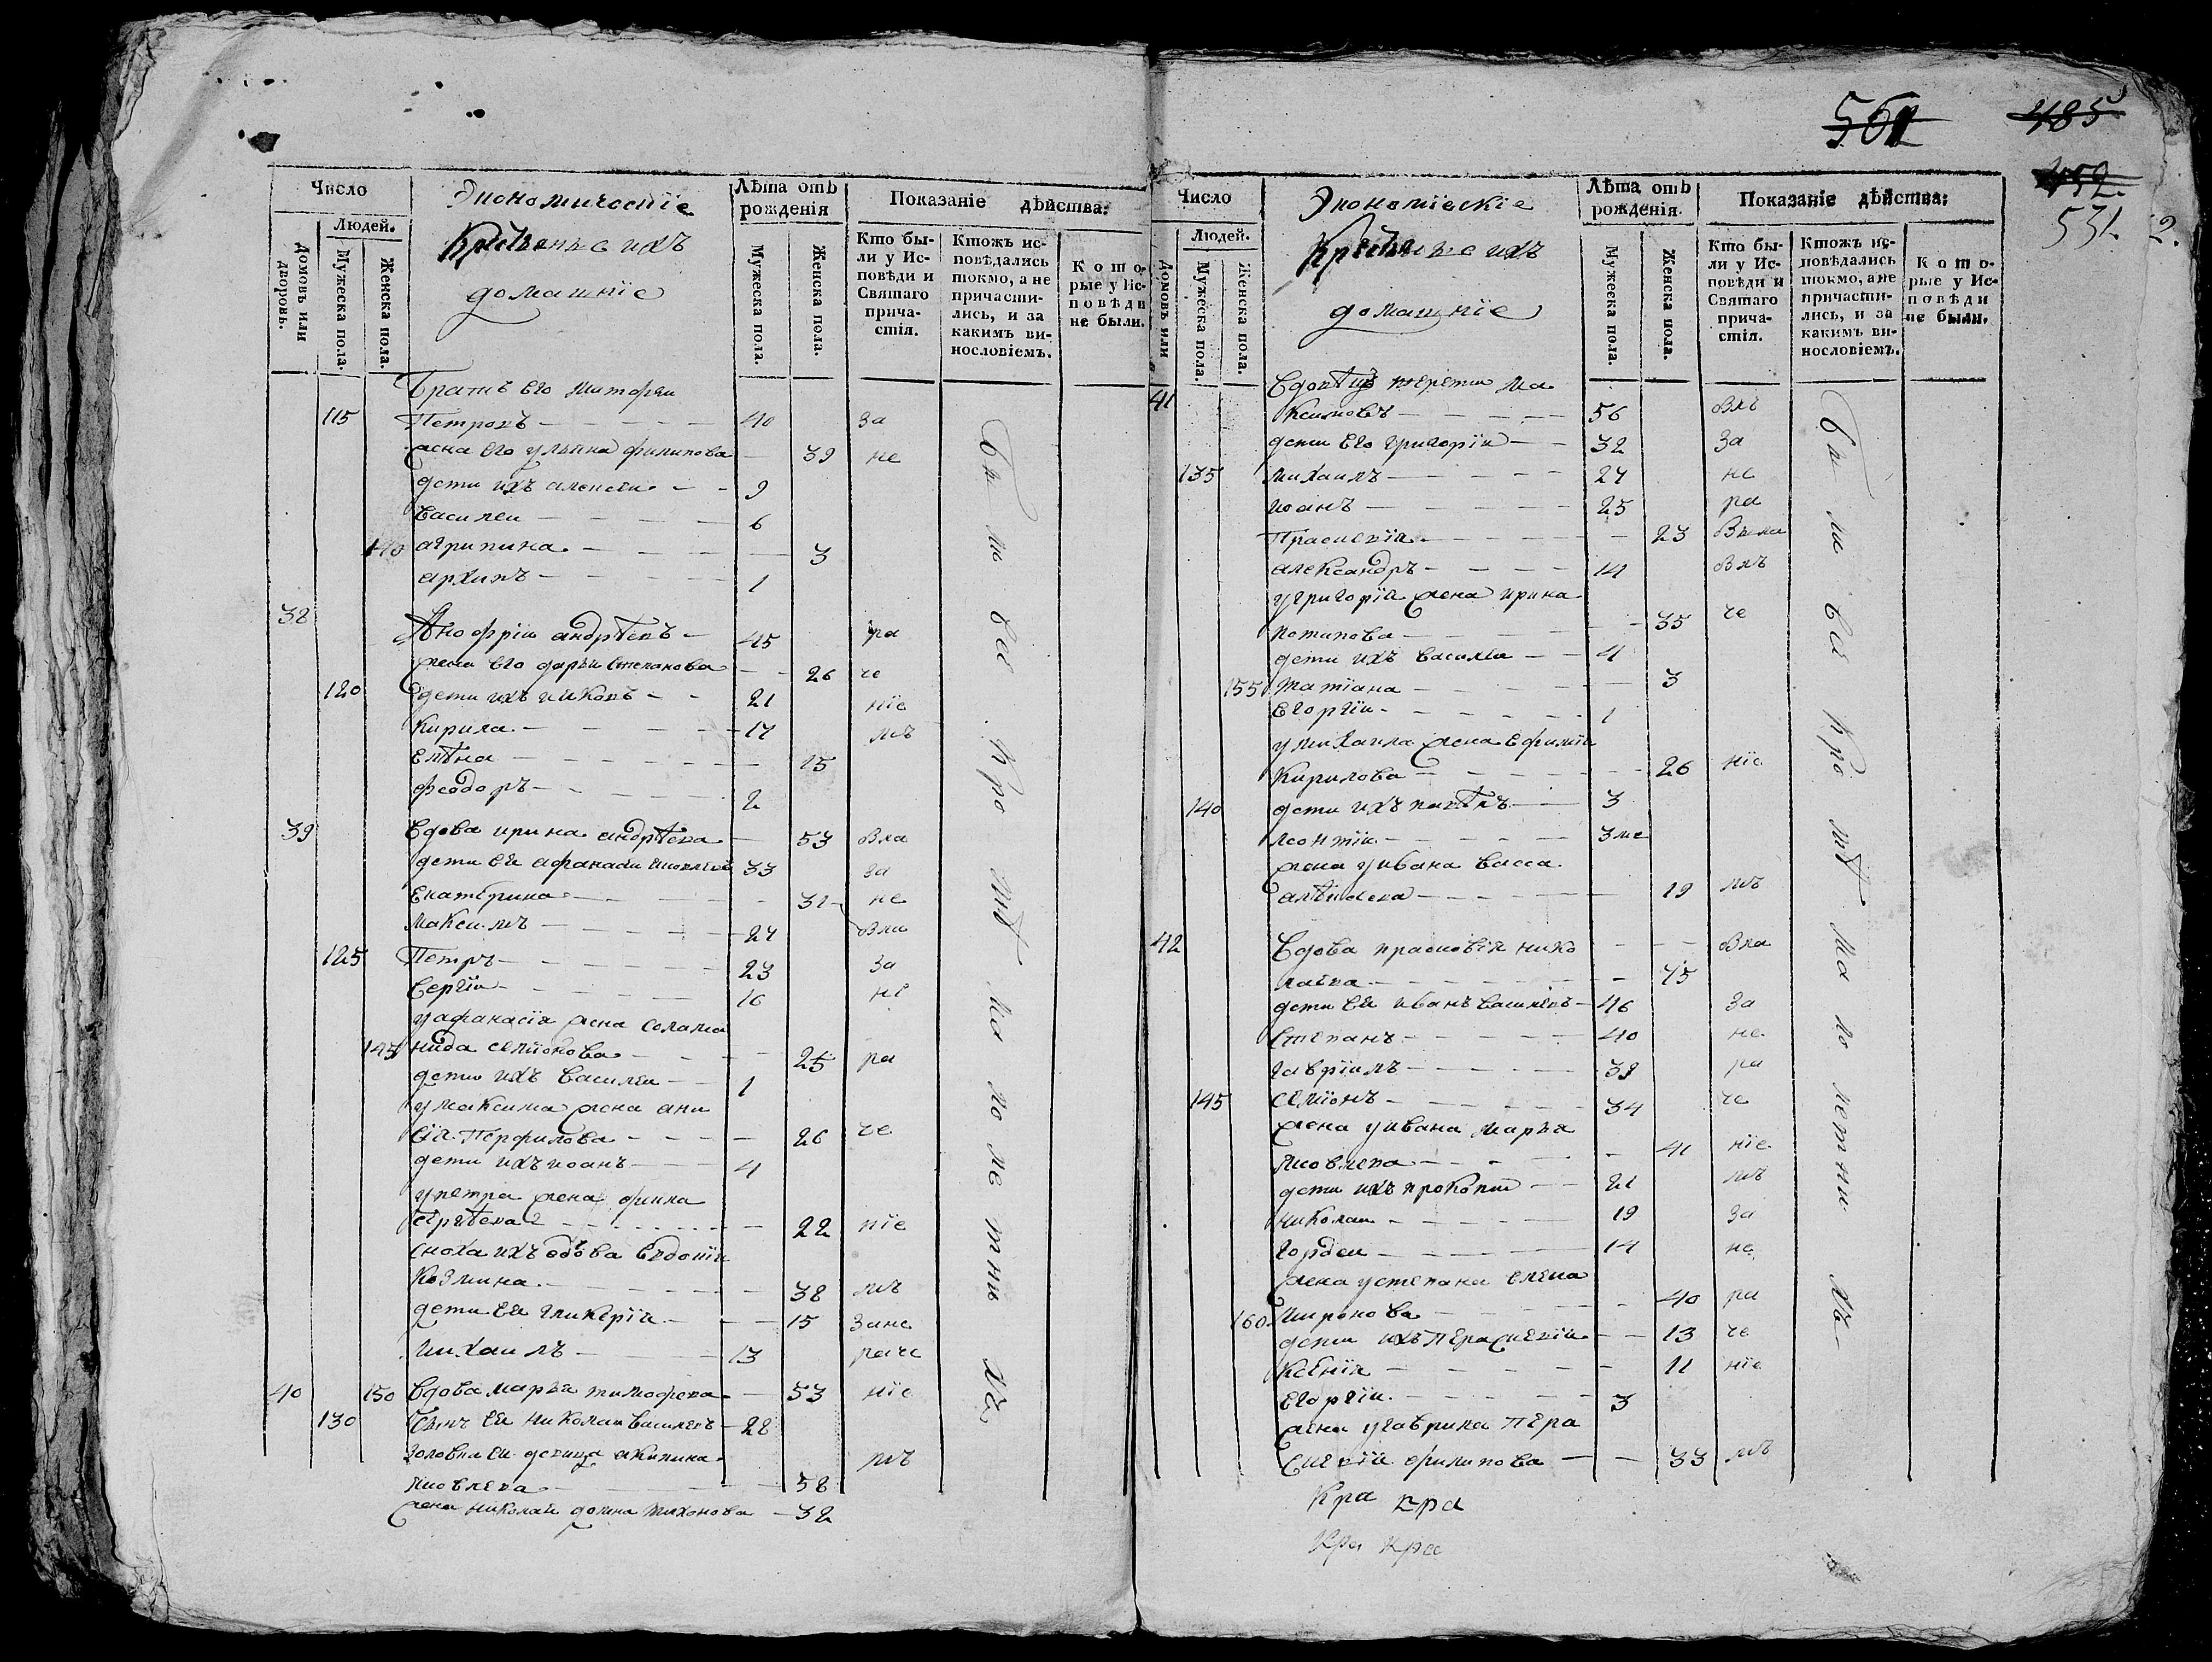 561
485
452.
531. 2.
Число
Людей.
Домовъ или дворовъ.
Мужеска пола.
Женска пола.
Экономические
Крестьяне с ихъ
домашніе
Лѣта отъ рожденія
Мужеска пола.
Женска пола.
Показаніе дѣйства:
Кто бы-
ли у Ис-
повѣди и
Святаго
прича-
стія.
Ктожъ ис-
повѣдались
токмо, а не
причасти-
лись, и за
какимъ ви-
нословіемъ.
Кото-
рые у Ис-
повѣди
не были.
Братъ его митофеи
115 Петровъ 40 за
жена его ульяна филипова 39 не
дети ихъ алексеи 9
василеи 6
140 агрипина 3
архипъ 1
38 Анофріи андрѣевъ 45 ра
жена его дарья степанова 26 че
120 дети ихъ 21 ніе
кирила 17 мъ
елѣна 15
феодоръ 2
39 вдова ирина андрѣева 53 вла
дети ея афанасеи 33 за
екатерина 31 не
максимъ 24 вли
125 Петръ 23 за
сергіи 16 не
у афанасія жена солама
145 нида семіонова 25 ра
дети ихъ василеи 1
у максима жена ани
сія перфилова 26 че
дети ихъ иоанъ 4
у петра жена фекла
22 ніе
сноха ихъ вдова евдокия
козмина 38 мъ
дети ея гликерія 15 зане
михаилъ 13 раче
40 150 вдова марья тимофеева 53 ніе
130 сынъ ея николаи василевъ 28
золовка ея девица акилина мъ
яковлева 58
жена николая домна тихонова 32
бы ли все кро мѣ ма ло ле тни хъ
Число
Людей.
Домовъ или
Мужеска пола.
Женска пола.
Экономіескіе
Крестьяне с ихъ
домашніе
Лѣта отъ рожденія
Мужеска пола.
Женска пола.
Показаніе дѣйства:
Кто бы-
ли у Ис-
повѣди и
Святаго
прича-
стія.
Ктожъ ис-
повѣдались
токмо, а не
причасти-
лись, и за
какимъ ви-
нословіемъ.
Кото-
рые у Ис-
повѣди
не были.
41 вдовецъ терети ма
ксимовъ 56 влъ
дети его григорій 32 за
135 михаилъ 27 не
иоанъ 25 ра
Праскевія 23 вла
александръ 14 влъ
у григорія жена ирина
потапова 35 че
дети ихъ василеи 4
155 татіана 3
егоргіи 1
у михаила жена ефимія
кирилова 26 ніе
140 дети ихъ 3
леонтіи 3 ме
жена у ивана васса
алѣксеева 19 мъ
42 вдова прасковія нико
лаева 75 вла
дети ея иванъ василевъ 46 за
степанъ 40 не
гавріилъ 39 ра
145 семіонъ 34 че
жена у ивана марья
яковлева 41 ніе
дети ихъ прокопии 21 мъ
николаи 19 за
гордеи 14 не
жена у степана елена
160 миронова 40 ра
дети ихъ перасківія 13 че
ксенія 11 ніе
егоргіи 3
жена у гаврила пера
скивія филипова 33 мъ
бы ли все кро мѣ ма ло летни хъ
Кра кра
Кра кра